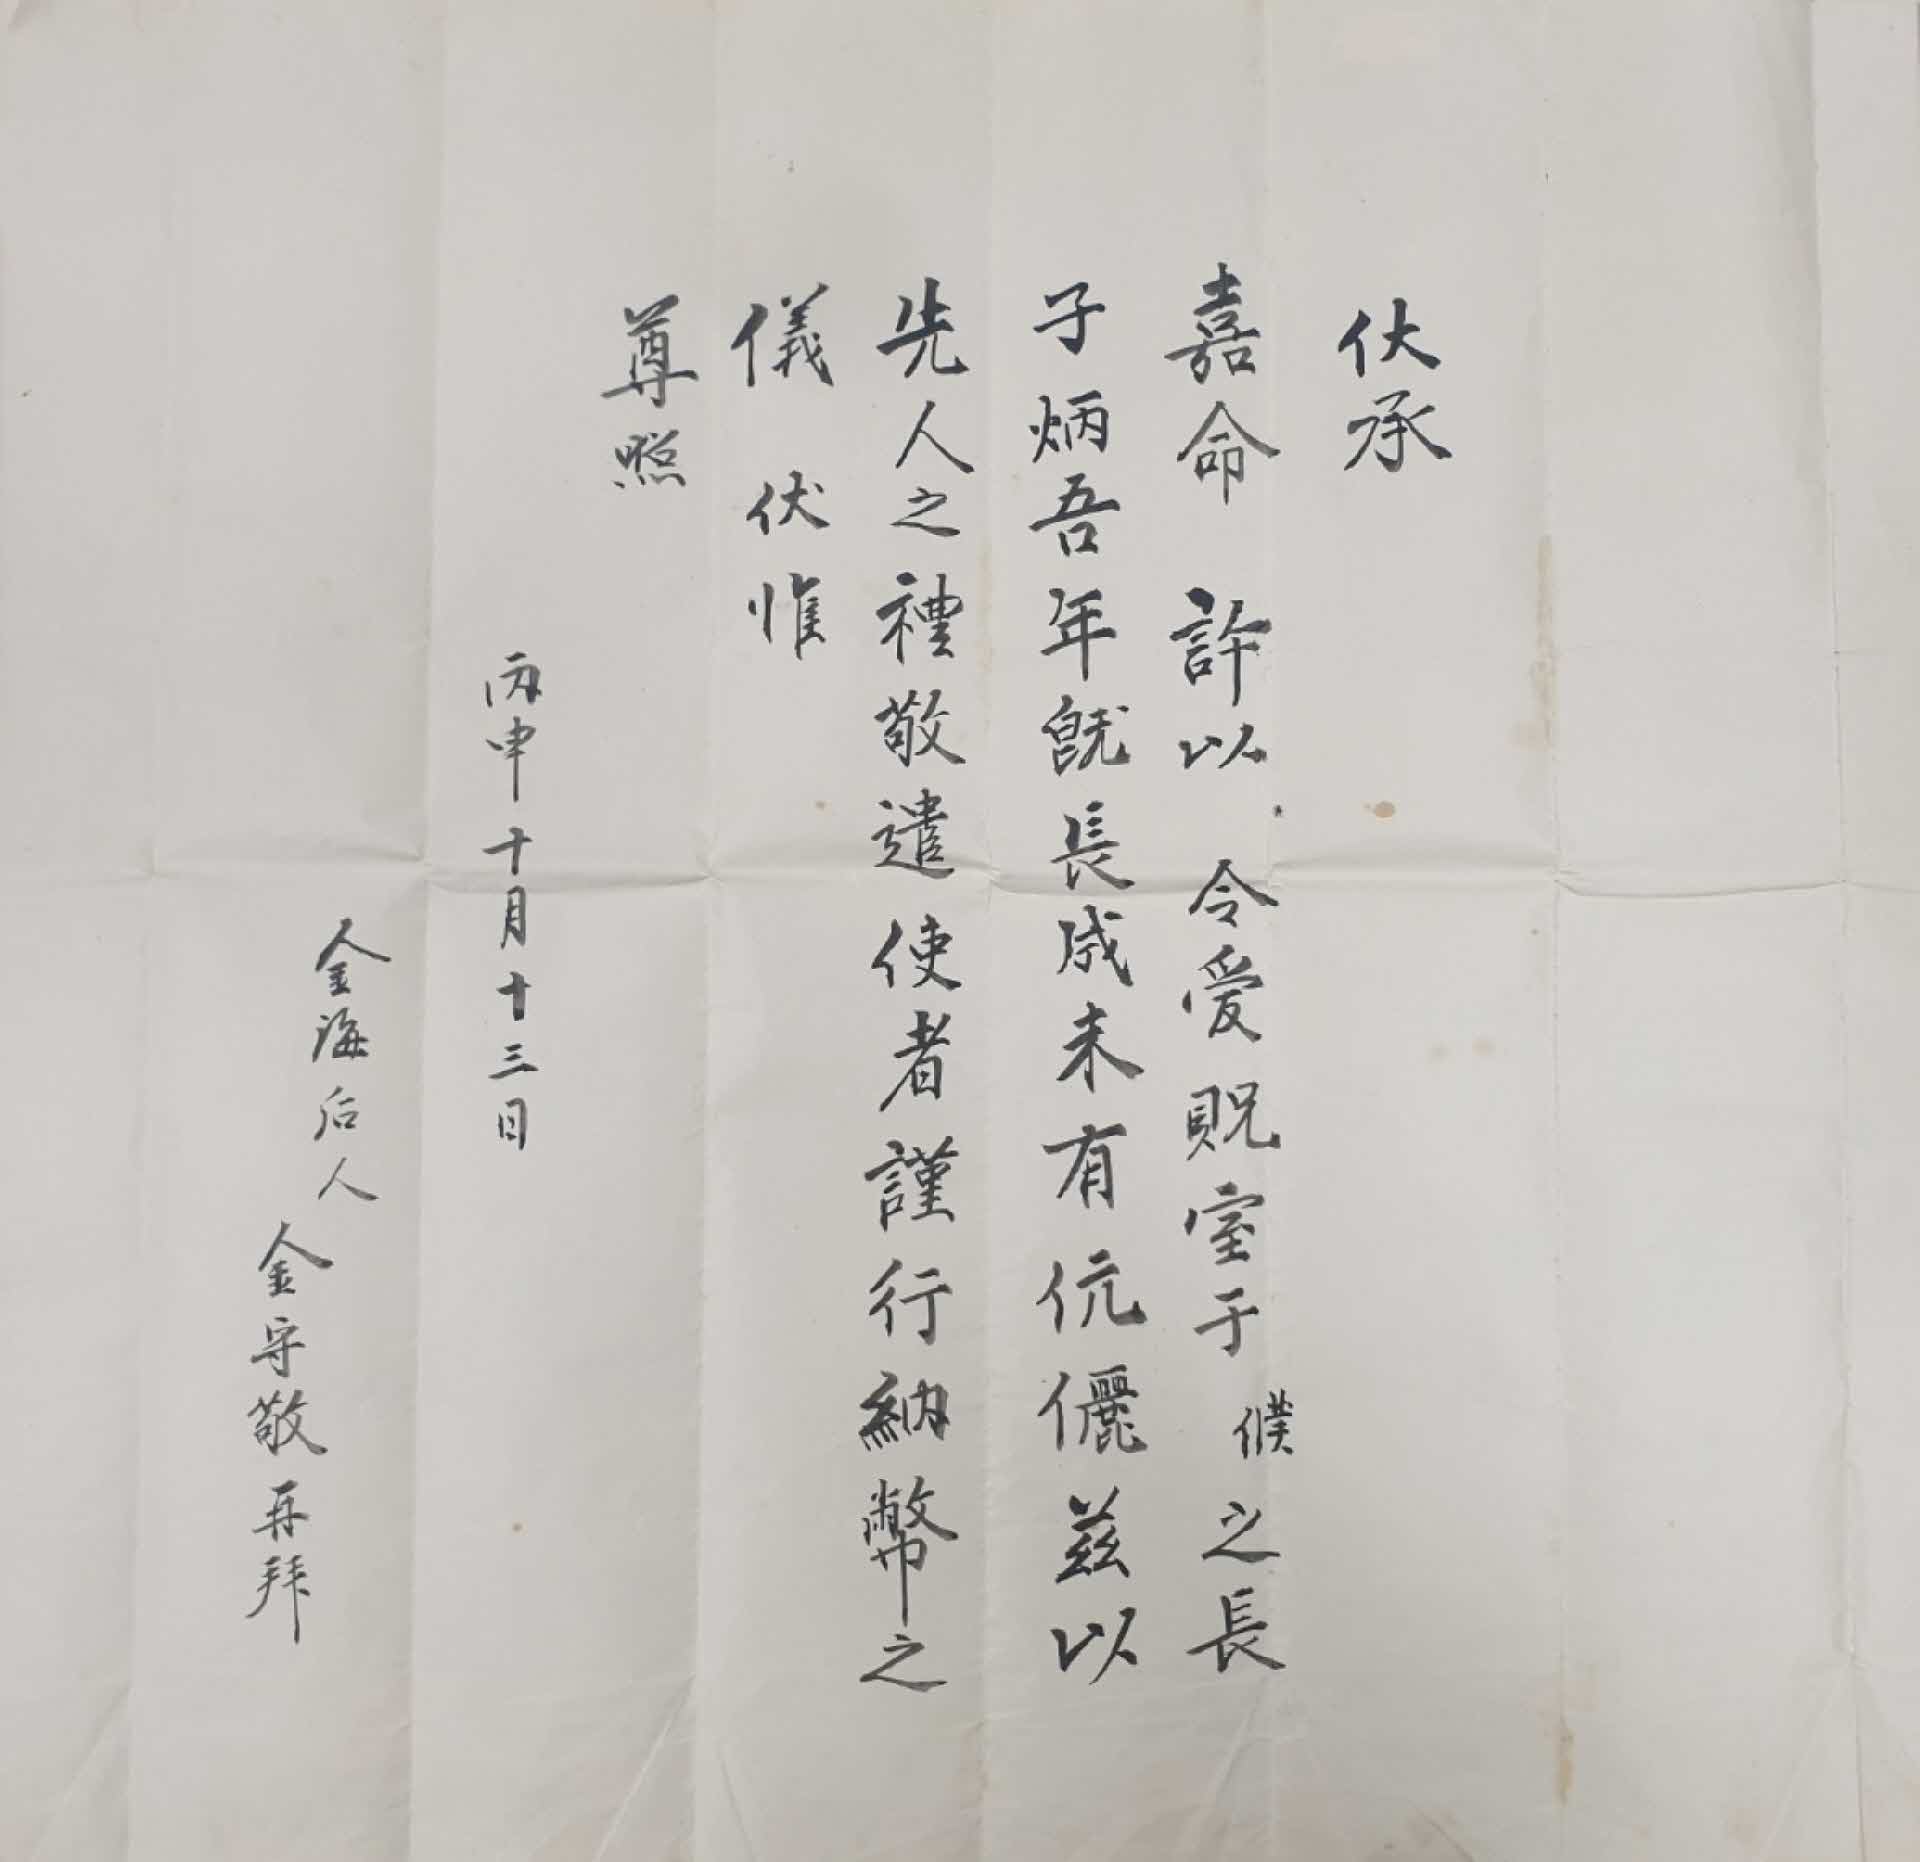 伏承
嘉命 許以 令愛貺室于 僕之長
子炳吾年旣長成未有伉儷玆以
先人之禮敬遣使者謹行納幣之
儀 伏惟
尊照
丙申十月十三日
金海后人
金守敬再拜